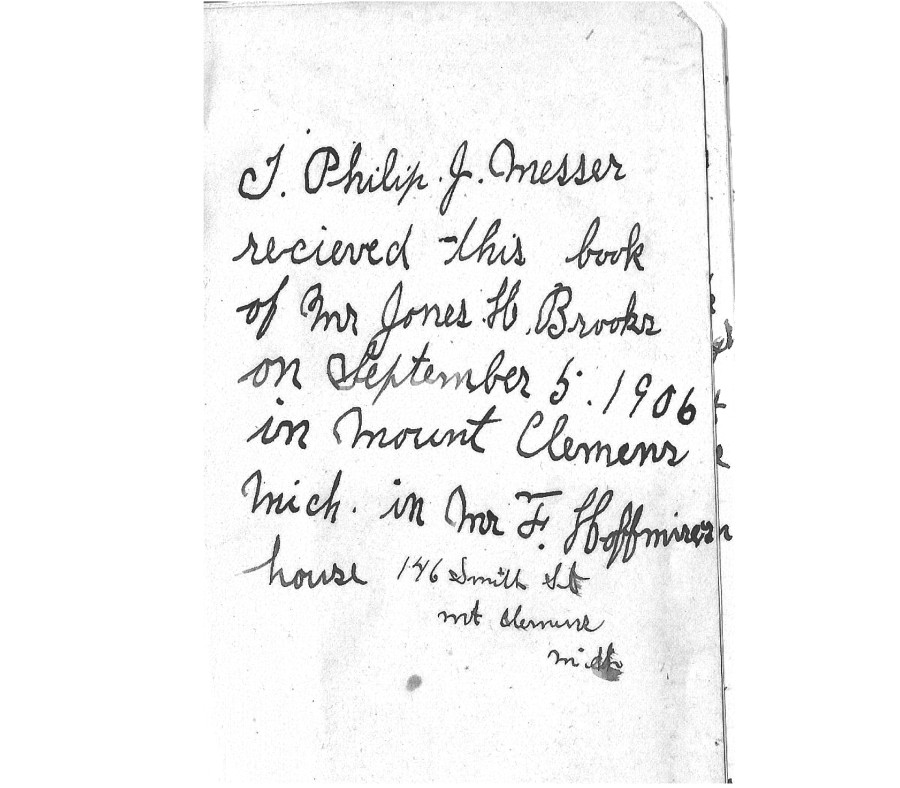 I. Philip. J. Messer
recieved this book
of Mr Jones H. Brooks
on September 5. 1906
in Mount Clemens
Mich. in Mr F.
house 146 Smith St
mt Clemens
Mich